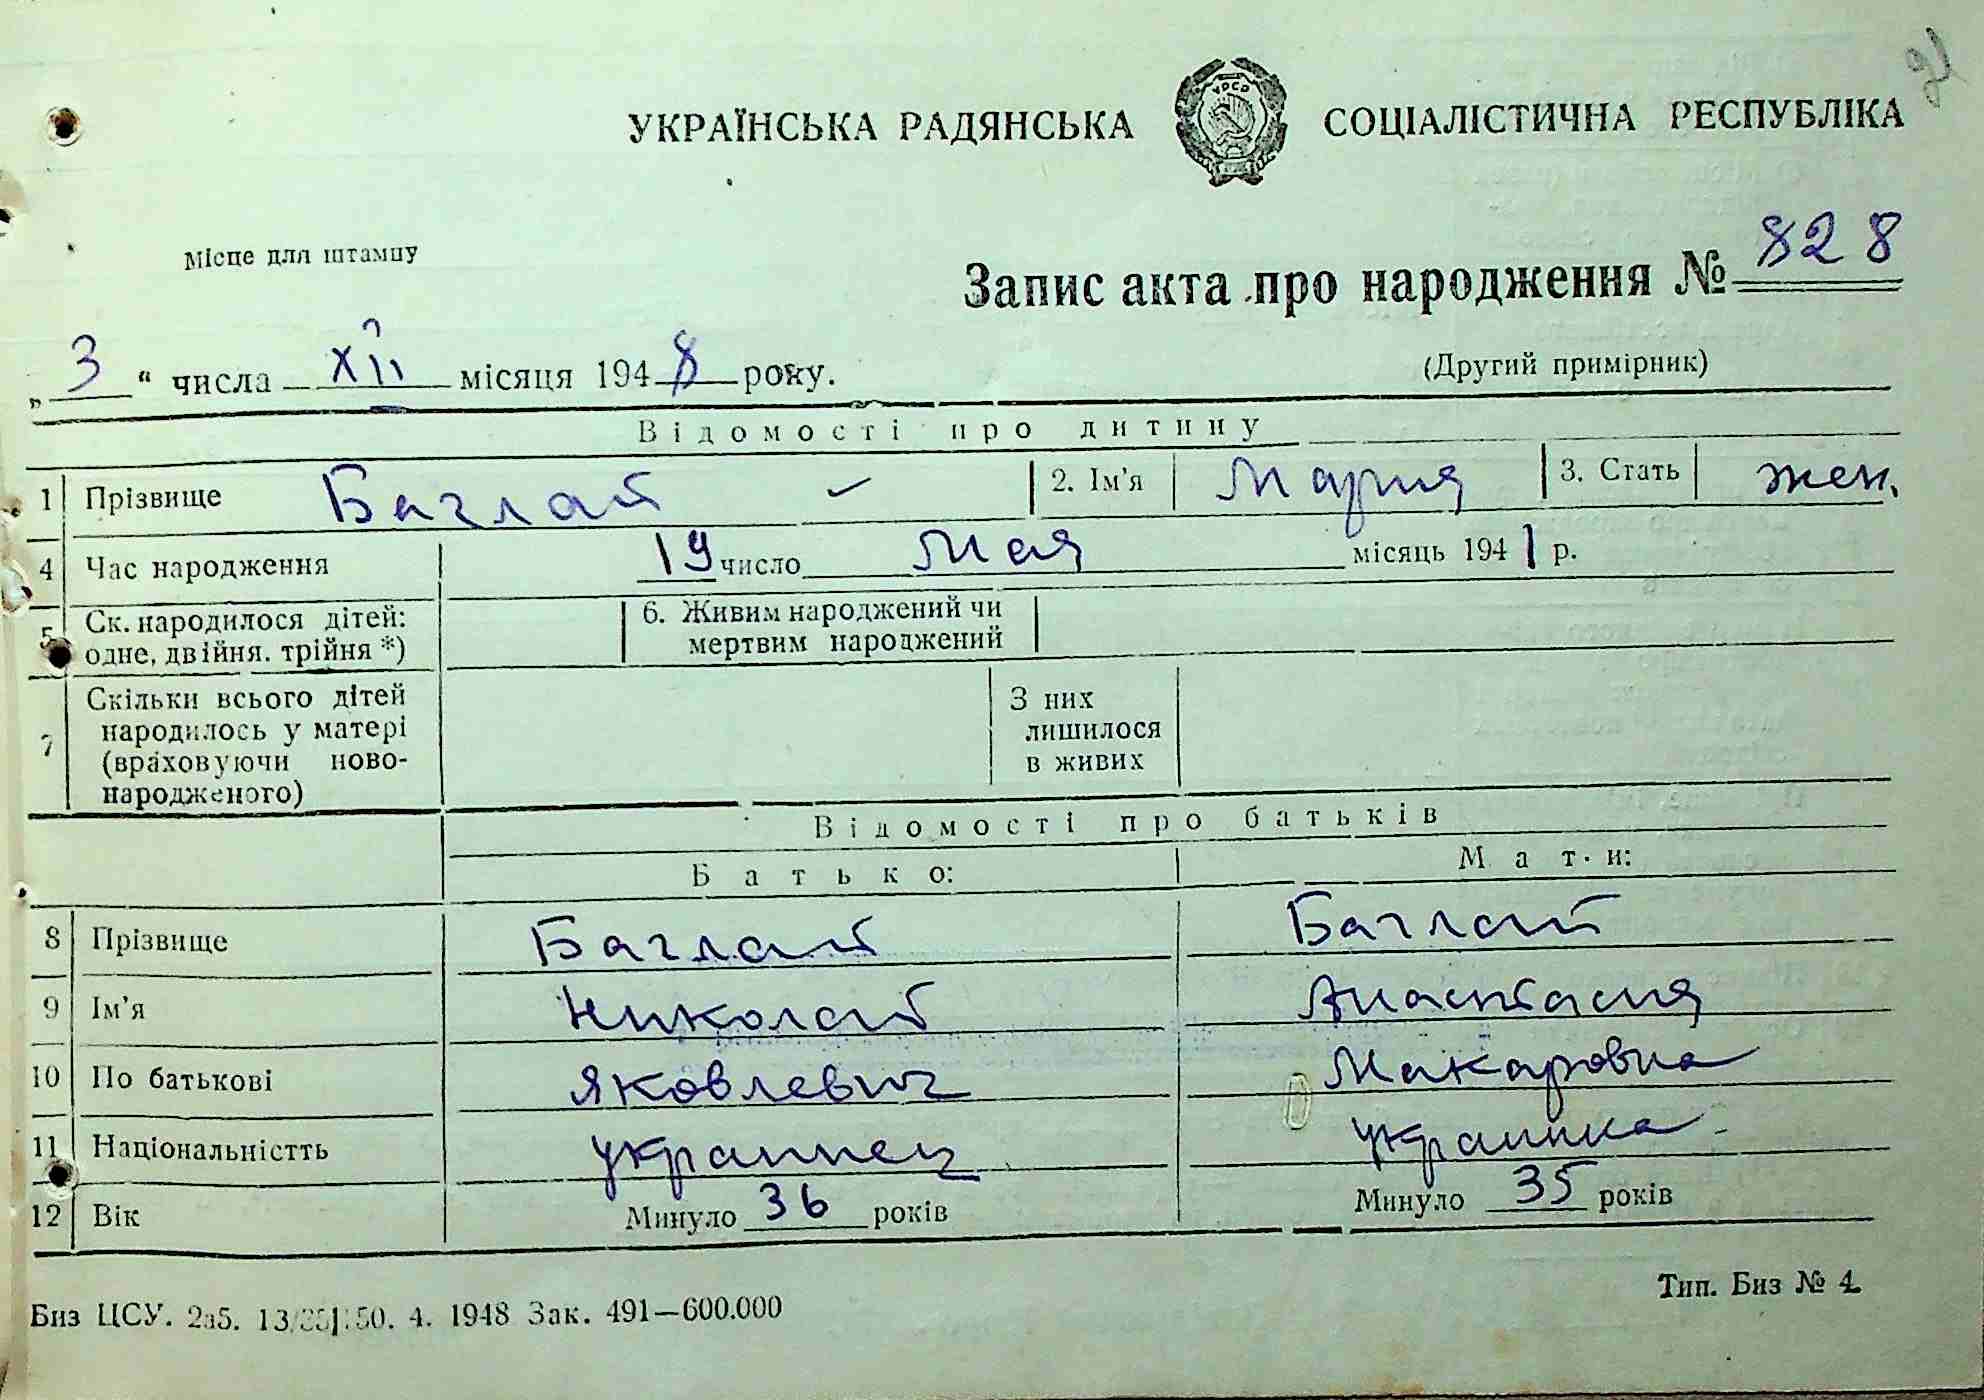 УКРАЇНСЬКА РАДЯНСЬКА СОЦІАЛІСТИЧНА РЕСПУБЛІКА
УРСР
Місце для штампу
Запис акта про народження № 828
„3“ числа XII місяця 1948 року.
(Другий примірник)
Відомості про дитину
1 Прізвище Баглай 2. Ім'я Мария 3. Стать жен.
4 Час народження 19 число Мая місяць 1941 р.
5 Ск. народилося дітей: одне, двійня. трійня *) 6. Живим народжений чи мертвим народжений
7 Скільки всього дітей народилось у матері (враховуючи ново-народженого) З них лишилося в живих
Відомості про батьків
Батько: Мати:
8 Прізвище Баглай Баглай
9 Ім'я Николай Анастасия
10 По батькові Яковлевич Макаровна
11 Національністть украинец украинка
12 Вік Минуло 36 років Минуло 35 років
Биз ЦСУ. 2а5. 50. 4. 1948 Зак. 491—600.000
Тип. Биз № 4